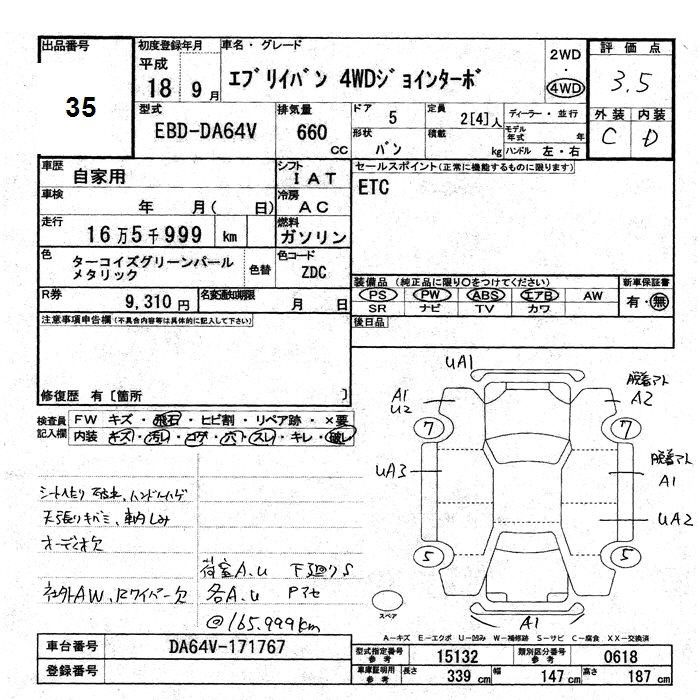 出品番号
35
初度登録年月
平成
18 9月
車名・グレード
エブリイバン 4WDジョインターボ
2WD
・
4WD
評価点
3.5
外装 内装
C D
型式
EBD-DA64V
排気量
660 CC
ドア 5
定員 2[4]人
形状 バン
積載 kg
ディーラー・並行
モデル年式 年
ハンドル 左・右
車歴 自家用
シフト IAT
車検 年 月( 日)
冷房 AC
走行 16万5千999 km
燃料 ガソリン
色 ターコイズグリーンパール
メタリック
色替
色コード ZDC
R券 9,310円
名変通知期限 月 日
セールスポイント(正常に機能するものに限ります)
ETC
装備品(純正品に限り○をつけてください)
PS PW ABS エアB AW
SR ナビ TV カワ
新車保証書
有・無
後日品
注意事項申告欄(不具合内容等は具体的に記入して下さい)
修復歴 有[箇所 ]
検査員
記入欄
FW キズ・飛石・ヒビ割・リペア跡・×要
内装 キズ・汚レ・コゲ・穴・スレ・キレ・破レ
天張りキバミ、
オーディオ欠
社外AW、Rワイパー欠
荷室A.U 下廻りS
各A.U Pアセ
@165.999km
UA1
A1
U2
脱着アト
A2
7 7
UA3
脱着アト
A1
UA2
5 5
スペア
A1
A-キズ E-エクボ U-凹み W-補修跡 S-サビ C-腐食 XX-交換済
車台番号 DA64V-171767
登録番号
型式指定番号 参考 15132
類別区分番号 参考 0618
車庫証明用 参考 長さ 339 cm 幅 147 cm 高さ 187 cm